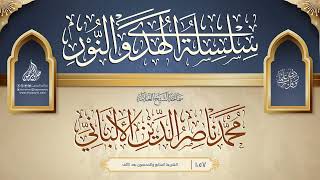 سلسلة الهدى والنور
سماحة الشيخ العلامة
محمد ناصر الدين الألباني
الشريط السابع والخمسون بعد الألف
١٠٥٧